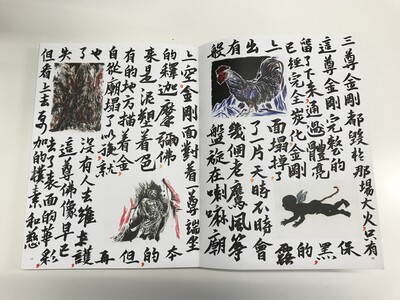 三尊金剛都毀於那場大火只有
這尊金剛完整的保
留了下來通過體亮黑的
已經完全炭化金剛
上面塌掉露
出了一片天時不時會
有幾個老鷹風箏
般盤旋在喇嘛廟
上空金剛面對着一尊端坐
的釋迦摩彌佛本
來是泥塑着着色的
有的地方描着金但
自從廟塌了以後就再
也沒有人去維護
了這尊佛像早已
失去了表面的華彩
但看上去更加的樸素和慈